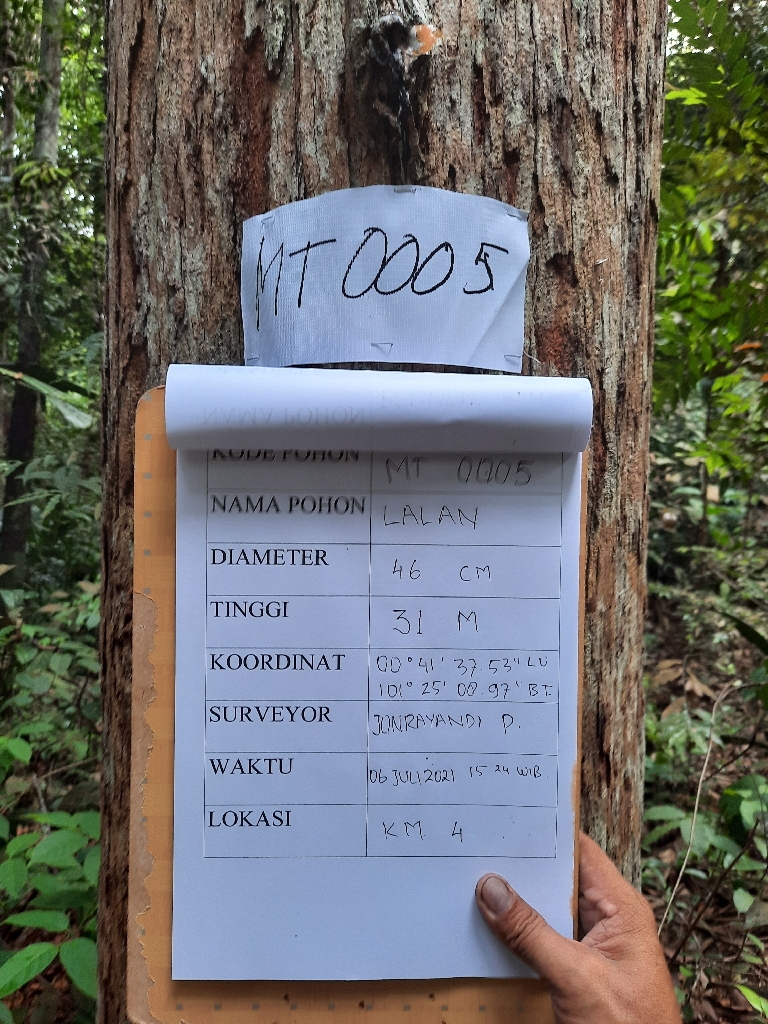 MT 0005
KODE POHON MT 0005
NAMA POHON LALAN
DIAMETER 46 CM
TINGGI 31 M
KOORDINAT 00° 41' 37.53" LU
101° 25' 00.97" BT
SURVEYOR JONRAYANDI P.
WAKTU 06 JULI 2021 15 24 WIB
LOKASI KM 4